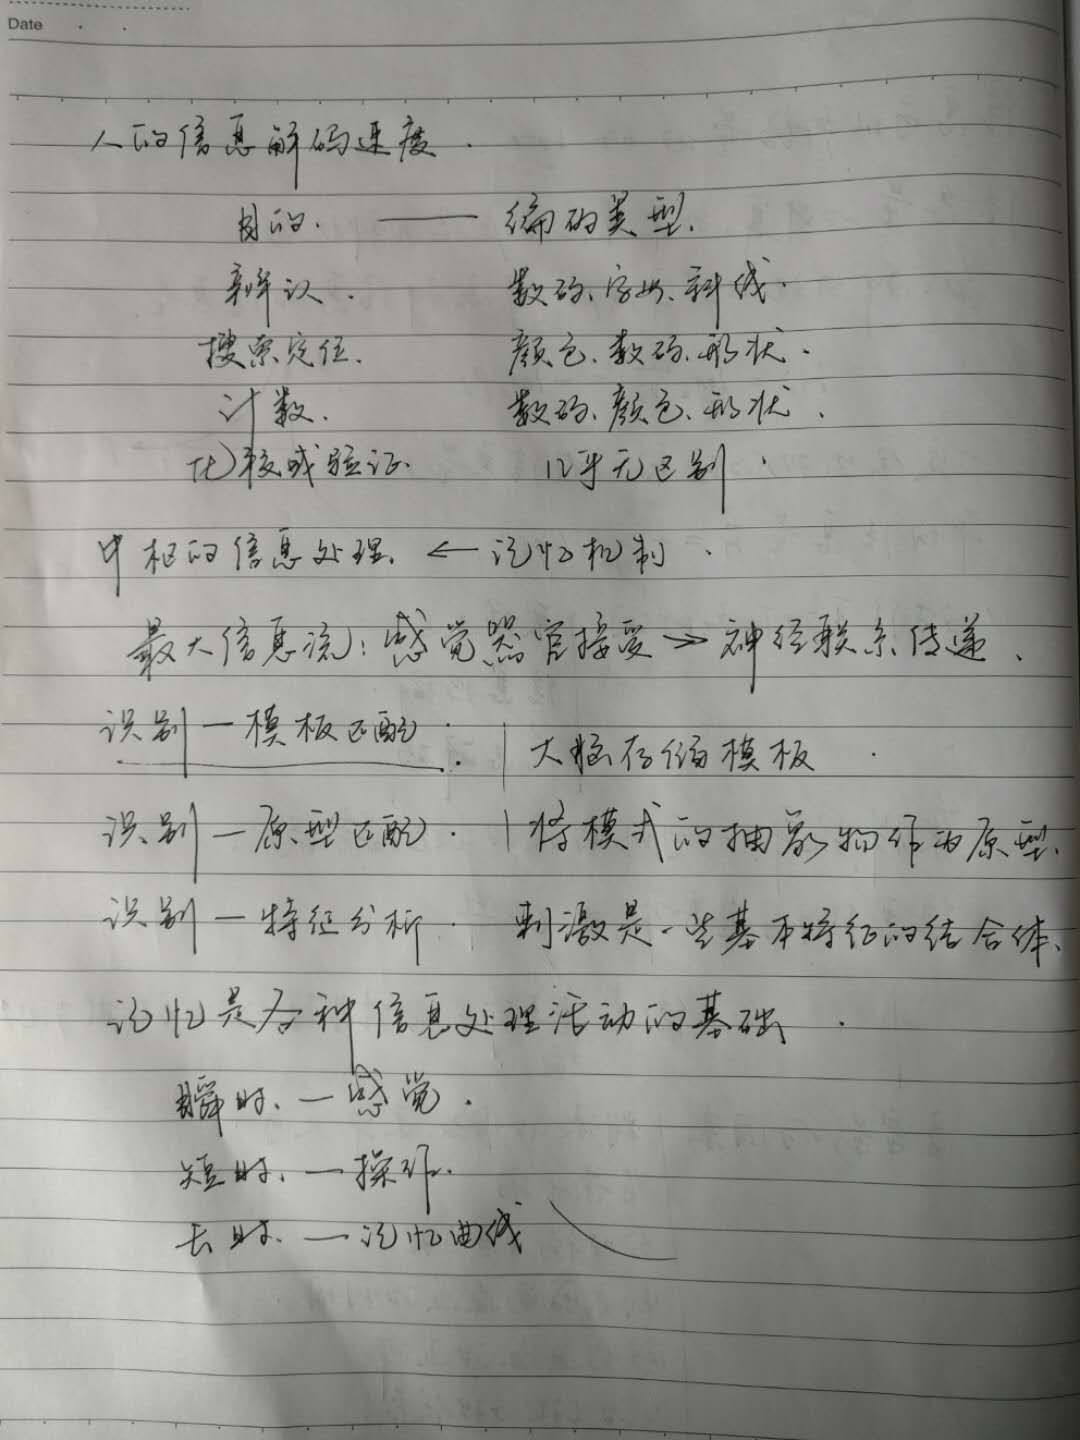 Date
人的信息解码速度.
目的. —— 编码类型.
辨认. 数码、字母、斜线.
搜索定位. 颜色、数码、形状.
计数. 数码、颜色、形状.
比较或验证. 几乎无区别.
中枢的信息处理. ← 记忆机制.
最大信息流：感觉器官接受→神经联系传递.
识别—模板匹配. | 大脑存储模板.
识别—原型匹配. | 将模式的抽象物作为原型.
识别—特征分析. 刺激是一些基本特征的结合体.
记忆是各种信息处理活动的基础.
瞬时、—感觉.
短时、—操作.
长时、—记忆曲线